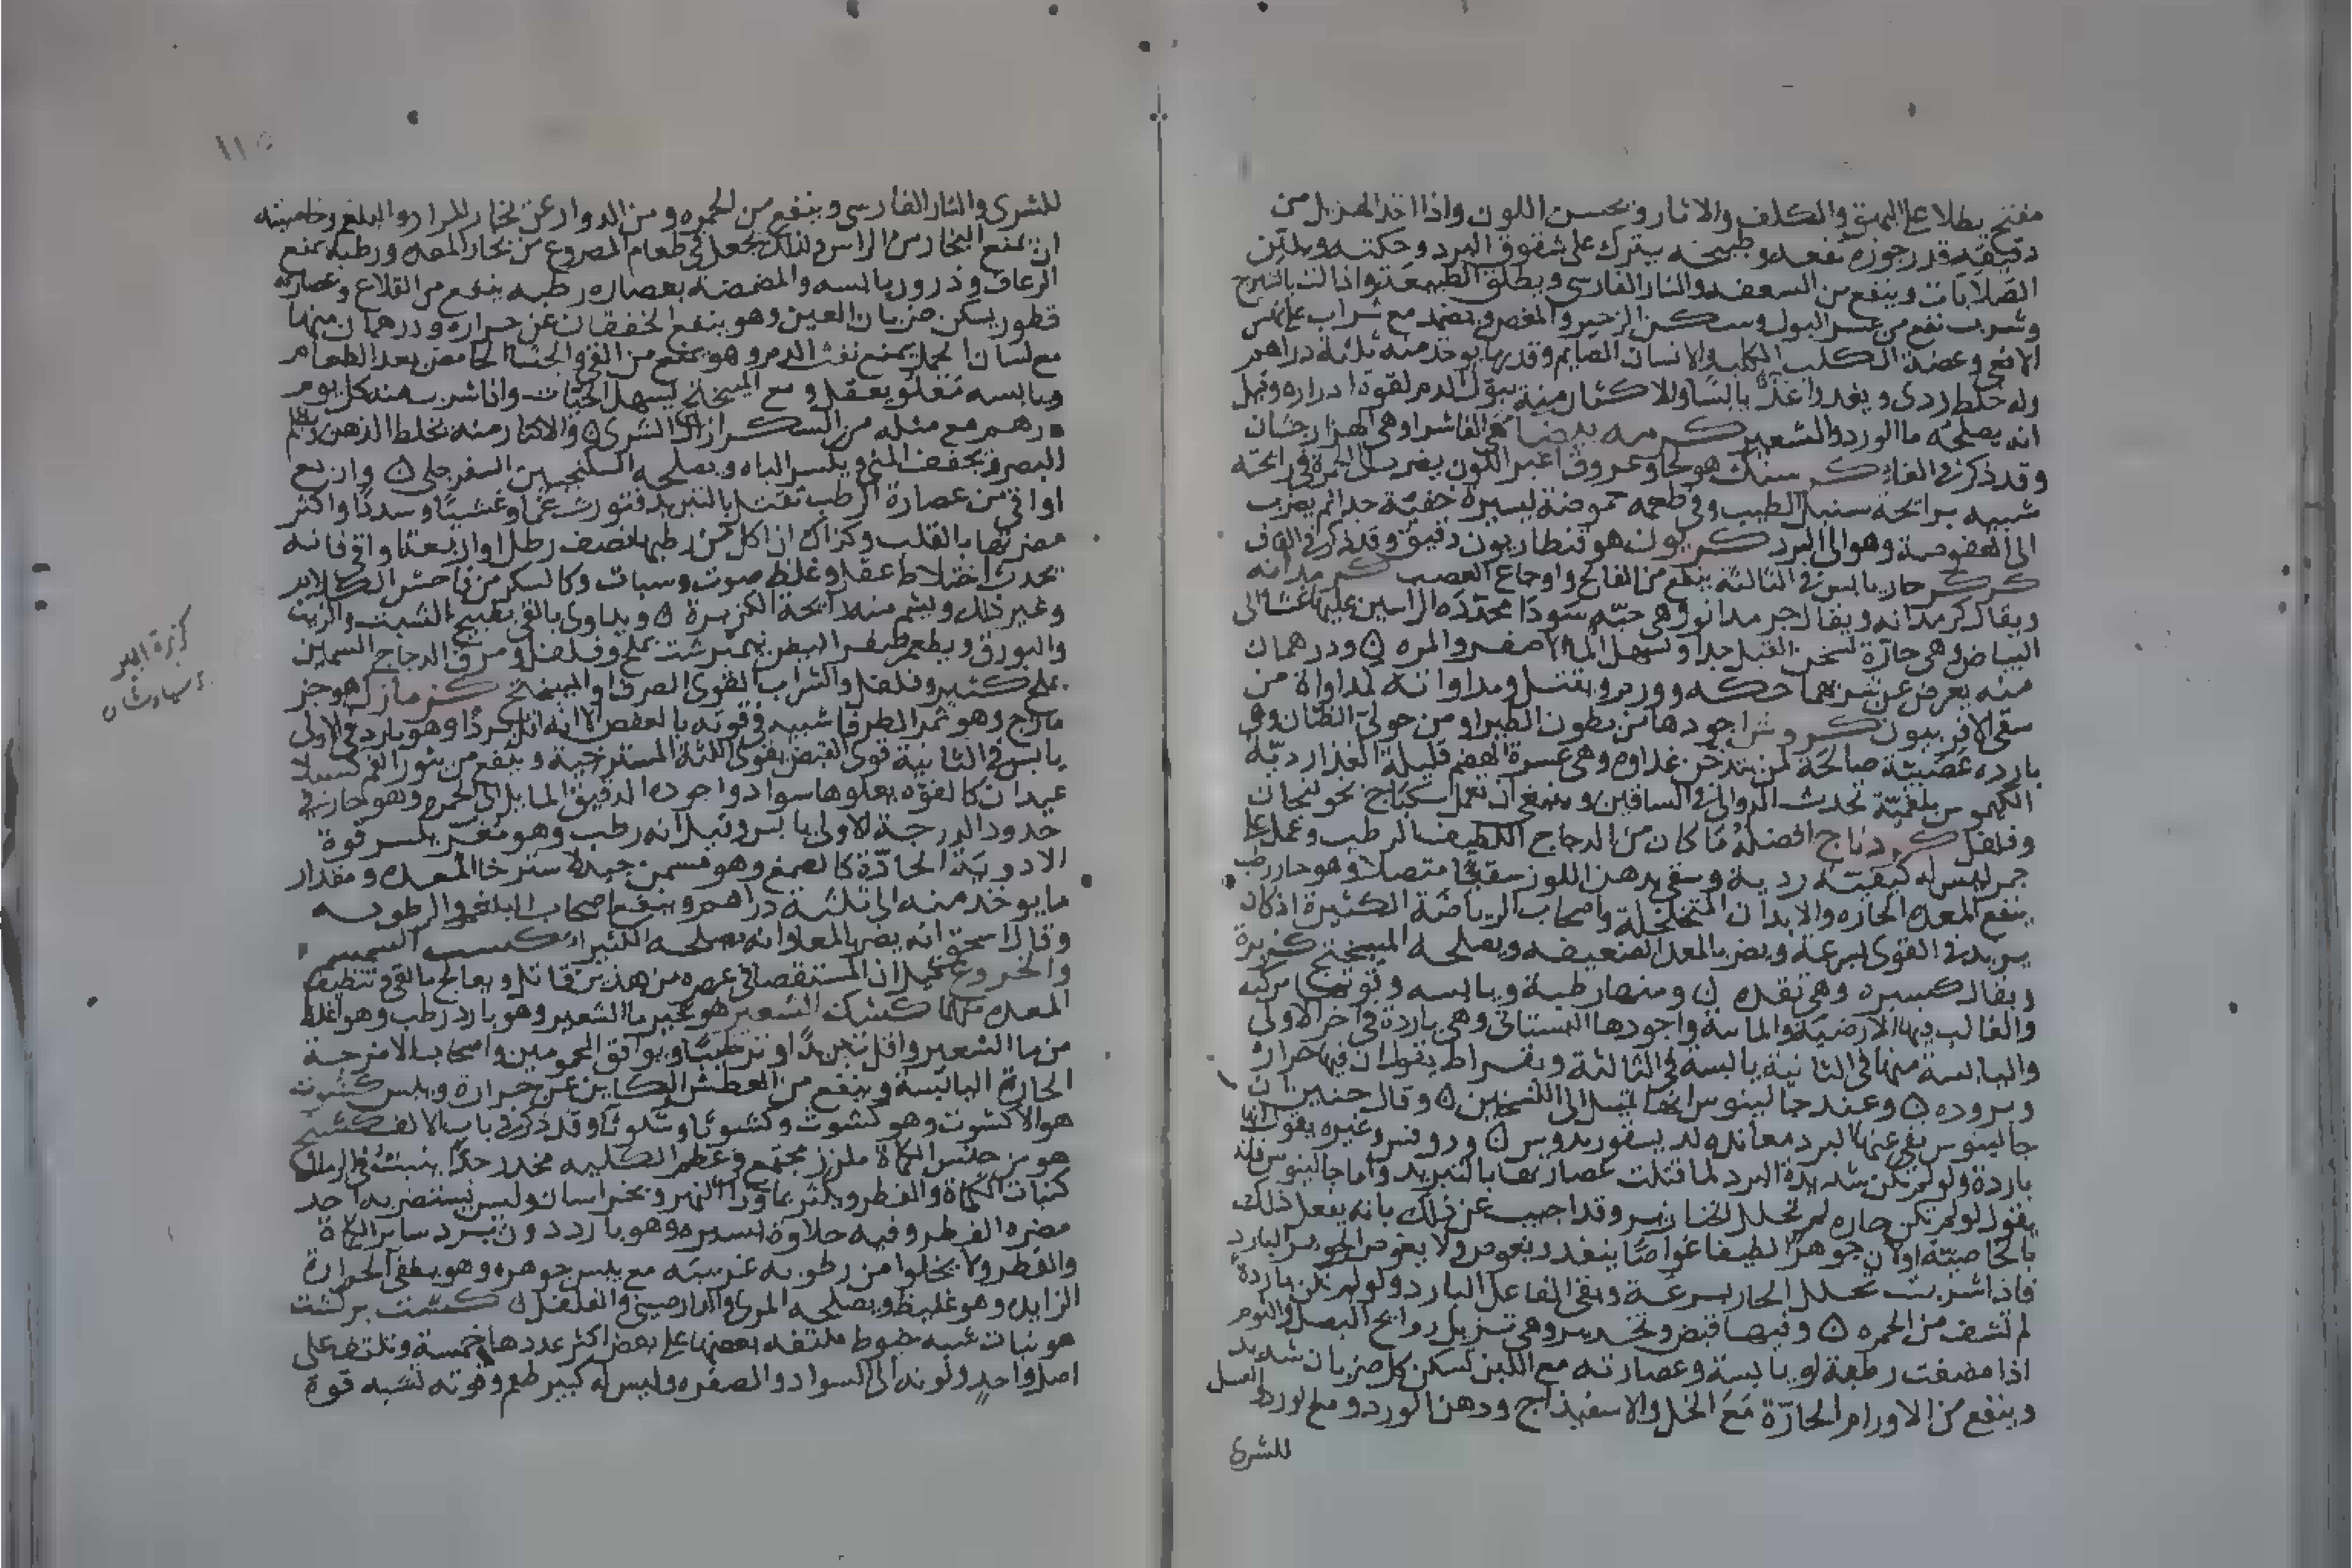 مفتح يطلا على البهق والكلف والاثار ويحسن اللون واذا اخذ المهزول من
دقيقه قدر جوزة نفعه وطبيخه يترك على شقوق البرد وحكته ويلين
الصلابات وينفع من السعفه والنار الفارسى ويطلق الطبيعة واذا لت بالخل
وشرب نفع من عسر البول وسكن الزحير والمغص ويضمد مع شراب على نهش
الافعى وعضة الكلب الكلب والانسان الصايم وقد يوخذ منه ثلثة دراهم
وله خلط ردى ويغدوا غذا يابسا والاكثار منه يبول الدم لقوة ادراره وقيل
انه يصلحه ما الورد والشعير كرمه بيضا هى الفاشرا وهى الهزارجشان
وقد ذكر فى الفا كرسنك هو لحا وعروق اغبر اللون يضرب الى الحمرة فى رايحته
شبيه برايحة سنبل الطيب وفى طعمه حموضة يسيرة خفية جدا ثم يضرب
الى العفوصة وهو الى البرد كريون هو قنطاريون دقيق وقد ذكر فى القاف
كركر حار يابس فى الثالثة ينفع من الفالج واوجاع العصب كرمدانه
ويقال كرمدانه ويقال جرمدانق وهى حبه سودا محددة الراسين عليها غشا الى
البياض وهى حارة تسخن القبل جدا وتسهل الما الاصفر والمره ن ودرهمان
منه يعرض عن شربهما حكه وورم ويقتل ومداواته كمداواة من
سقى الافربيون كروش اجودها من بطون الطير او من حولى الضان وهى
بارده عصبية صالحة لمن يتدخن غذاوه وهى عسرة الهضم قليلة الغذا ردية
الكيموس بلغمية تحدث الدوالى فى الساقين وينبغى ان تعمل سكباج بخولنجان
وفلفل كردناج افضله ما كان من الدجاج اللطيف الرطب وعمل على
جمر ليس له كيفيته ردية وسقى بدهن اللوز سقيا متصلا وهو حار رطب
ينفع المعدة الحاره والابدان المتخلخلة واصحاب الرياضة الكثيرة اذ كان
يزيد فى القوى بسرعة ويضر بالمعدة الضعيفه ويصلحه الميبختج كزبرة
ويقال كسبره وهى تقده ن ومنها رطبة ويابسه وقوتها مركبه
والغالب فيها الارضية والمائية واجودها البستانى وهى باردة فى اخر الاولى
واليابسة منها فى الثانية يابسة فى الثالثة وبقراط يقول ان فيها حرارة
وبروده ن وعند جالينوس انها تميل الى التسخين ن وقال حنين ان
جالينوس نفى عنها البرد معاندة لديسقوريدوس ن وروفس وغيره يقول انها
باردة ولو لم تكن شديدة البرد لما قتلت عصارتها بالتبريد واما جالينوس فانه
يقول لو لم تكن حاره لم تحلل الخنازير وقد اجيب عن ذلك بانه يفعل ذلك
بالخاصية او لان جوهرا لطيفا غواصا ينفد ويغوص ولا يغوص الجوهر البارد
فاذا شربت تحلل الحار بسرعة وبقى الفاعل البارد ولو لم تكن باردة
لم تشف من الحمره ن وفيها قبض وتخدير وهى تزيل روايح البصل والثوم
اذا مضغت رطبة او يابسة وعصارته مع اللبن تسكن كل ضربان شديد
وينفع من الاورام الحارة مع الخل والاسفيذاج ودهن الورد ومع العسل
للشرى
١١٥
للشرى والنار الفارسى وينفع من الحمره ومن الدوار عن بخار المرار والبلغم وخاصيته
ان تمنع البخار من الراس ولذلك يجعل فى طعام المصروع من بخار المعده ورطبه يمنع
الرعاف وذرور يابسه والمضمضة بعصاره رطبه ينفع من القلاع وعصارته
قطور يسكن ضربان العين وهو ينفع الخفقان عن حراره ودرهمان منها
مع لسان الحمل يمنع نفث الدم وهو يمنع من القى والجشا الحامض بعد الطعام
ويابسه مقلو يعقل ومع الميبختج يسهل الحيات واذا شرب منه كل يوم
درهم مع مثله من السكر ازال الشرى ن والاكثار منه يخلط الذهن ويظلم
البصر ويجفف المنى ويكسر الباه ويصلحه السكنجبين السفرجلى ن واربع
اواقى من عصارة الرطب تقتل بالتبريد فتورث غما وغشيا وسددا واكثر
مضرتها بالقلب وكذلك ان اكل من رطبها نصف رطل او اربعة اواقى فانه
يحدث اختلاط عقل وغلظ صوت وسبات وكالسكر من فاحش الكلام
وغير ذلك ويشم منه رايحة الكزبرة ن ويداوى بالقى بطبيخ الشبث والزيت
والبورق ويطعم صفر البيض نيمبرشت بملح وفلفل ومرق الدجاج السمين
بملح كثير وفلفل والشراب القوى الصرف او الميبختج كزمازك هو جز
مازج وهو ثمر الطرفا شبيه فى قوته بالعفص الا انه اقل بردا وهو بارد فى الاولى
يابس فى الثانية قوى القبض يقوى اللثة المسترخية وينفع من بثور الفم كسيلا
عيدان كالفوه يعلوها سواد واجوده الدقيق المايل الى الحمرة وهو حار فى
حدود الدرجة الاولى يابس وقيل انه رطب وهو مغر يكسر قوة
الادوية الحادة كالصمغ وهو مسمن جيد لاسترخا المعده ومقدار
ما يوخذ منه الى ثلثة دراهم وينفع اصحاب البلغم والرطوبه
وقال اسحق انه يضر بالمعدة وانه يصلحه الكثيرا كسب السمسم
والخروع قيل ان المستقصى فى عصره من هذين قاتل ويعالج بالقى وتنظيف
المعده منهما كشك الشعير هو غير ما الشعير وهو بارد رطب وهو اغلظ
من ما الشعير واقل تبريدا وترطيبا ويوافق المحمومين واصحاب الامزجة
الحارة اليابسة وينفع من العطش الكاين عن حرارة ويبس كشوث
هو الاكشوث وهو كشوث وكشوثا وشكوثا وقد ذكر فى باب الالف كشنج
هو من جنس الكماة ملزز مجتمع فى عظم الكليه مخدر جدا ينبت فى الرمال
كنبات الكماة والفطر ويكثر بما ورا النهر وبخراسان وليس يستضر به احد
مضره الفطر وفيه حلاوة يسيره وهو بارد دون برد ساير الكماة
والفطر ولا يخلوا من رطوبه غريبه مع يبس جوهره وهو يطفى الحرارة
الزايده وهو غليظ ويصلحه المرى والدارصينى والفلفل ن كشت بركشت
هو نبات شبه خيوط ملتفه بعضها على بعض اكثر عددها خمسة وتلتف على
اصل واحد ولونه الى السواد والصفره وليس له كبير طعم وقوته تشبه قوة
كزبرة البير